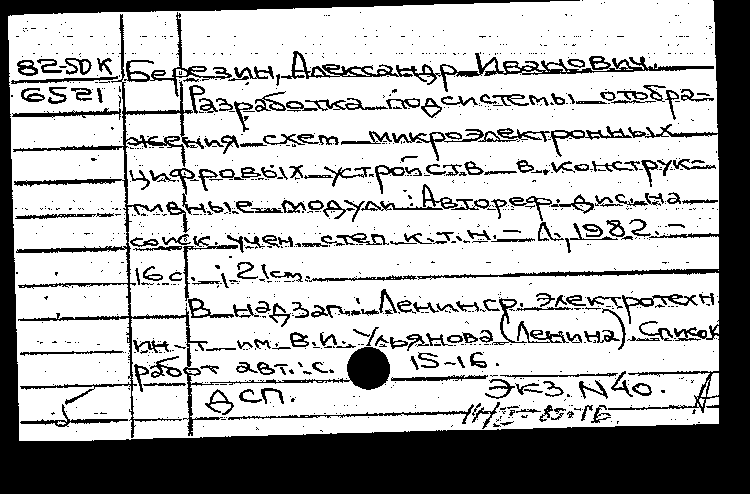 82-5DK Березин, Александр Иванович.
6521 Разработка подсистемы отобра-
жения схем микроэлектронных
цифровых устройств в конструк-
тивные модули : Автореф. дис. на
соиск. учен. степ. к.т.н. – Л., 1982. –
16 с. ; 21 см.
В надзаг.: Ленингр. электротехн.
ин-т им. В.И. Ульянова (Ленина). Список
работ авт.: с. 15-16.
ДСП. Экз. N 40.